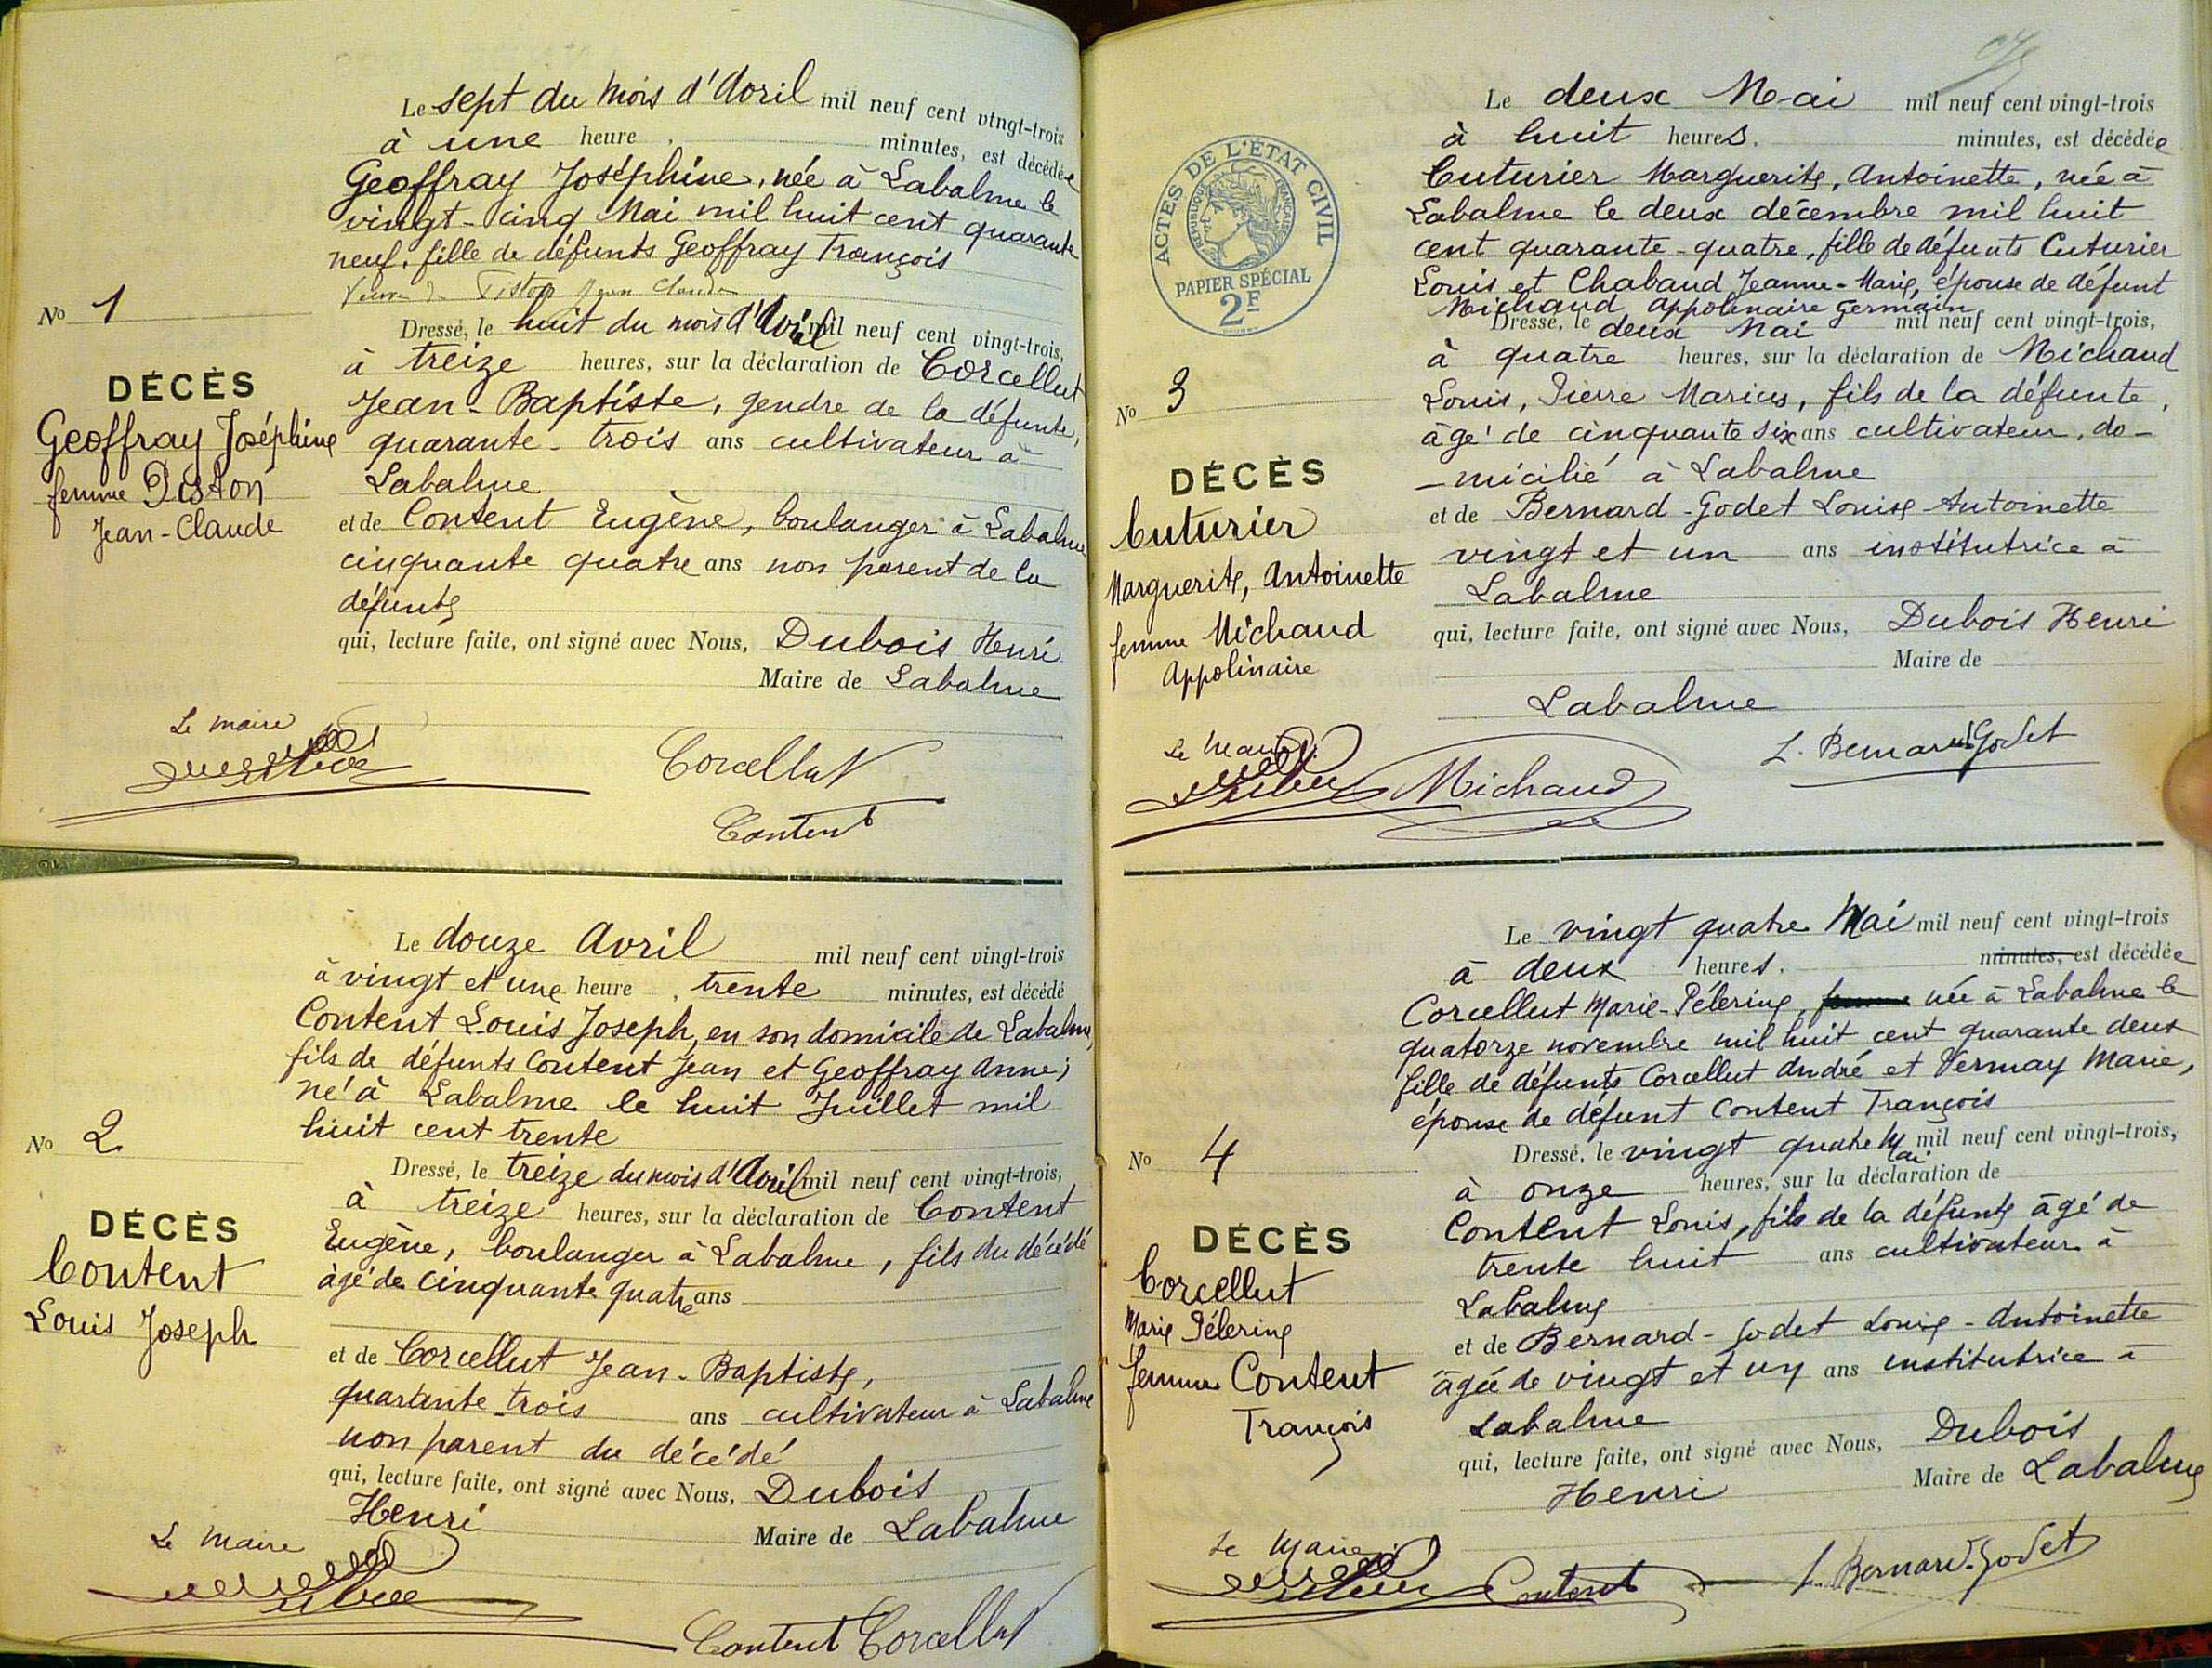 Le sept du mois d'Avril mil neuf cent vingt-trois
à une heure , minutes, est décédée
Geoffray Joséphine, née à Labalme le
vingt-cinq Mai mil huit cent quarante
neuf, fille de défunts Geoffray François
Veuve de Piston Jean Claude
No 1
Dressé, le huit du mois d'Avril mil neuf cent vingt-trois,
à treize heures, sur la déclaration de Corcellut
DÉCÈS
Jean-Baptiste, gendre de la défunte,
Geoffray Joséphine
femme Piston
Jean-Claude
quarante-trois ans cultivateur à
Labalme
et de Content Eugène, boulanger à Labalme
cinquante quatre ans non parent de la
défunte
qui, lecture faite, ont signé avec Nous, Dubois Henri
Maire de Labalme
Le maire
Corcellut
Content
Le douze Avril mil neuf cent vingt-trois
à vingt et une heure , trente minutes, est décédé
Content Louis Joseph, en son domicile de Labalme,
fils de défunts Content Jean et Geoffray Anne;
né à Labalme le huit Juillet mil
huit cent trente
No 2
Dressé, le treize du mois d'Avril mil neuf cent vingt-trois,
à treize heures, sur la déclaration de Content
DÉCÈS
Content
Louis Joseph
Eugène, boulanger à Labalme, fils du décédé
âgé de cinquante quatre ans
et de Corcellut Jean-Baptiste,
quarante-trois ans cultivateur à Labalme
non parent du décédé
qui, lecture faite, ont signé avec Nous, Dubois
Henri Maire de Labalme
Le Maire
Content Corcellut
Le deux Mai mil neuf cent vingt-trois
à huit heures. minutes, est décédée
Cuturier Marguerite, Antoinette, née à
Labalme le deux décembre mil huit
cent quarante-quatre, fille de défunts Cuturier
Louis et Chabaud Jeanne-Marie, épouse de défunt
Michaud Appolinaire Germain
ACTES DE L'ÉTAT CIVIL
RÉPUBLIQUE FRANÇAISE
PAPIER SPÉCIAL
2F
No 3
Dressé, le deux Mai mil neuf cent vingt-trois,
à quatre heures, sur la déclaration de Michaud
Louis, Pierre Marius, fils de la défunte,
âgé de cinquante six ans cultivateur, do-
-micilié à Labalme
DÉCÈS
Cuturier
Marguerite, Antoinette
femme Michaud
Appolinaire
et de Bernard-Godet Louise-Antoinette
vingt et un ans institutrice à
Labalme
qui, lecture faite, ont signé avec Nous, Dubois Henri
Maire de
Labalme
Le Maire
Michaud
L. Bernard-Godet
Le vingt quatre Mai mil neuf cent vingt-trois
à deux heures. minutes, est décédée
Corcellut Marie-Pélerine, femme née à Labalme le
quatorze novembre mil huit cent quarante deux
fille de défunts Corcellut André et Vernay Marie,
épouse de défunt Content François
No 4
Dressé, le vingt quatre Mai mil neuf cent vingt-trois,
à onze heures, sur la déclaration de
Content Louis, fils de la défunte âgé de
trente huit ans cultivateur à
Labalme
DÉCÈS
Corcellut
Marie Pélerine
femme Content
François
et de Bernard-Godet Louise-Antoinette
âgée de vingt et un ans institutrice à
Labalme
qui, lecture faite, ont signé avec Nous, Dubois
Henri Maire de Labalme
Le Maire
Content
L. Bernard-Godet